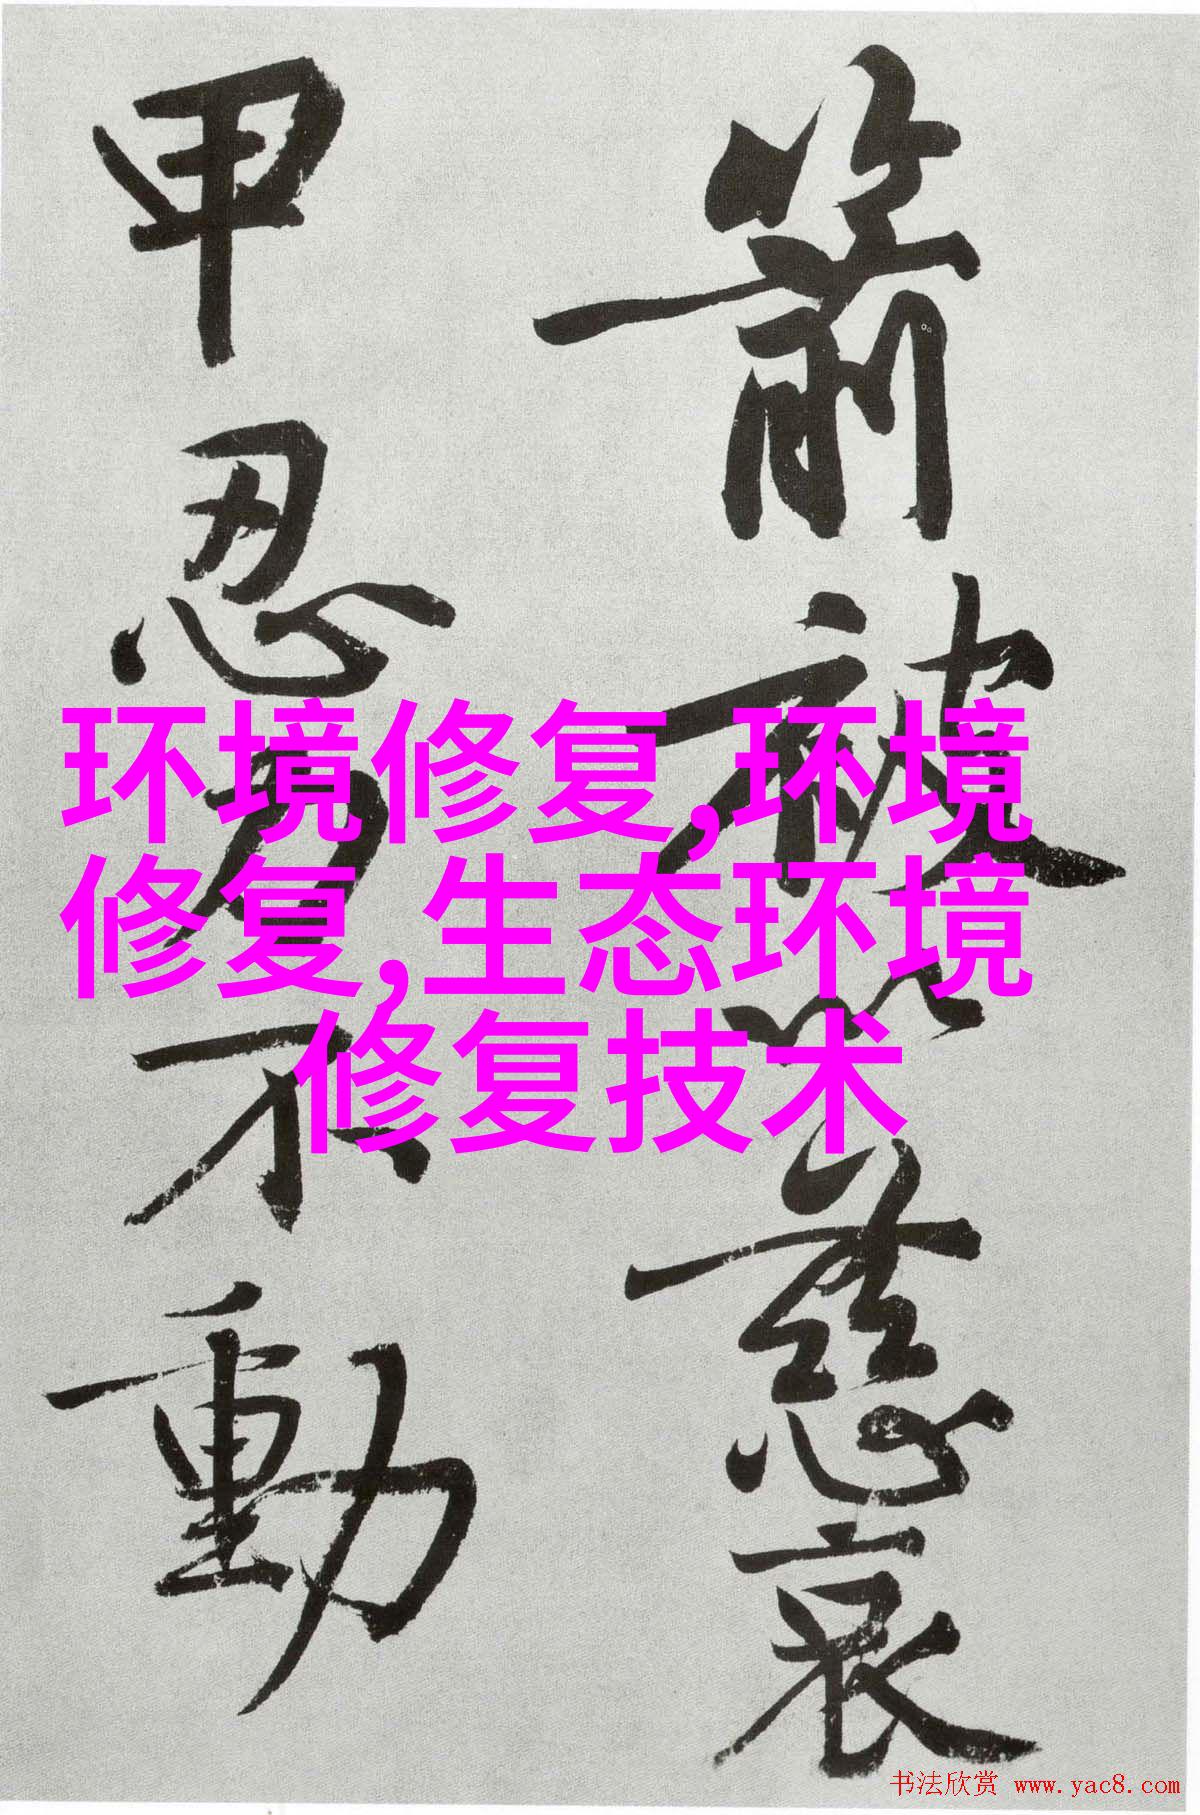 箭被以慈哀
甲忍力不動
环境修复,环境
修复,生态环境
修复技术
书法欣赏 www.yac8.com